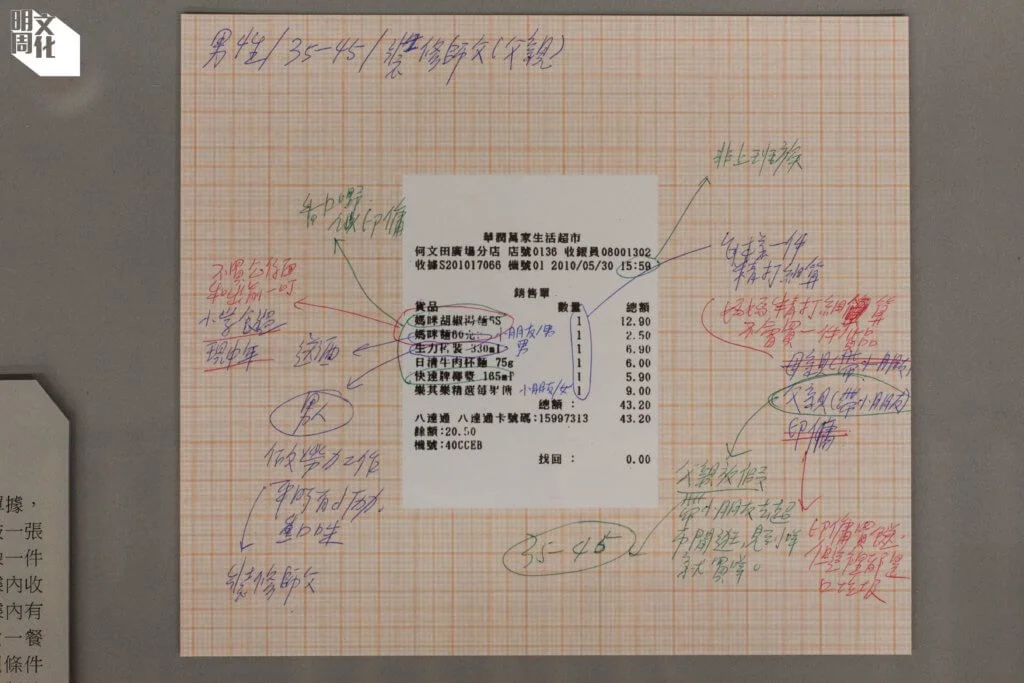 明周文化
男性/35-45/裝修師父(父親)
非上班族
華潤萬家生活超市
何文田廣場分店 店號0136 收銀員08001302
收據S201017066 機號01 2010/05/30 15:59
銷售單
貨品 數量 總額
媽咪胡椒湯麵5S 1 12.90
媽咪麵60克 1 2.50
生力 裝 330ml 1 6.90
日清牛肉杯麵 75g 1 6.00
快速牌椰漿 165ml 1 5.90
樂其樂精選 1 9.00
總額: 43.20
八達通 八達通卡號碼:15997313 43.20
餘額:20.50
機號:40CCEB
找回: 0.00
小朋友/男
男
小朋友/女
印傭
不買公仔面
小學
現中年
送酒
男人
做勞力工作
平時有小勞力,
舊口味
裝修師父
每樣一件
精打細算
媽媽精打細算
不會買一件
母親(帶小朋友)
父親(帶小朋友)
印傭
父親放假
帶小朋友去超
市閒逛,見到咩
就買咩。
35-45
印傭買餸,
垃圾
單據,
一張
一件
內收
內有
一餐
條件